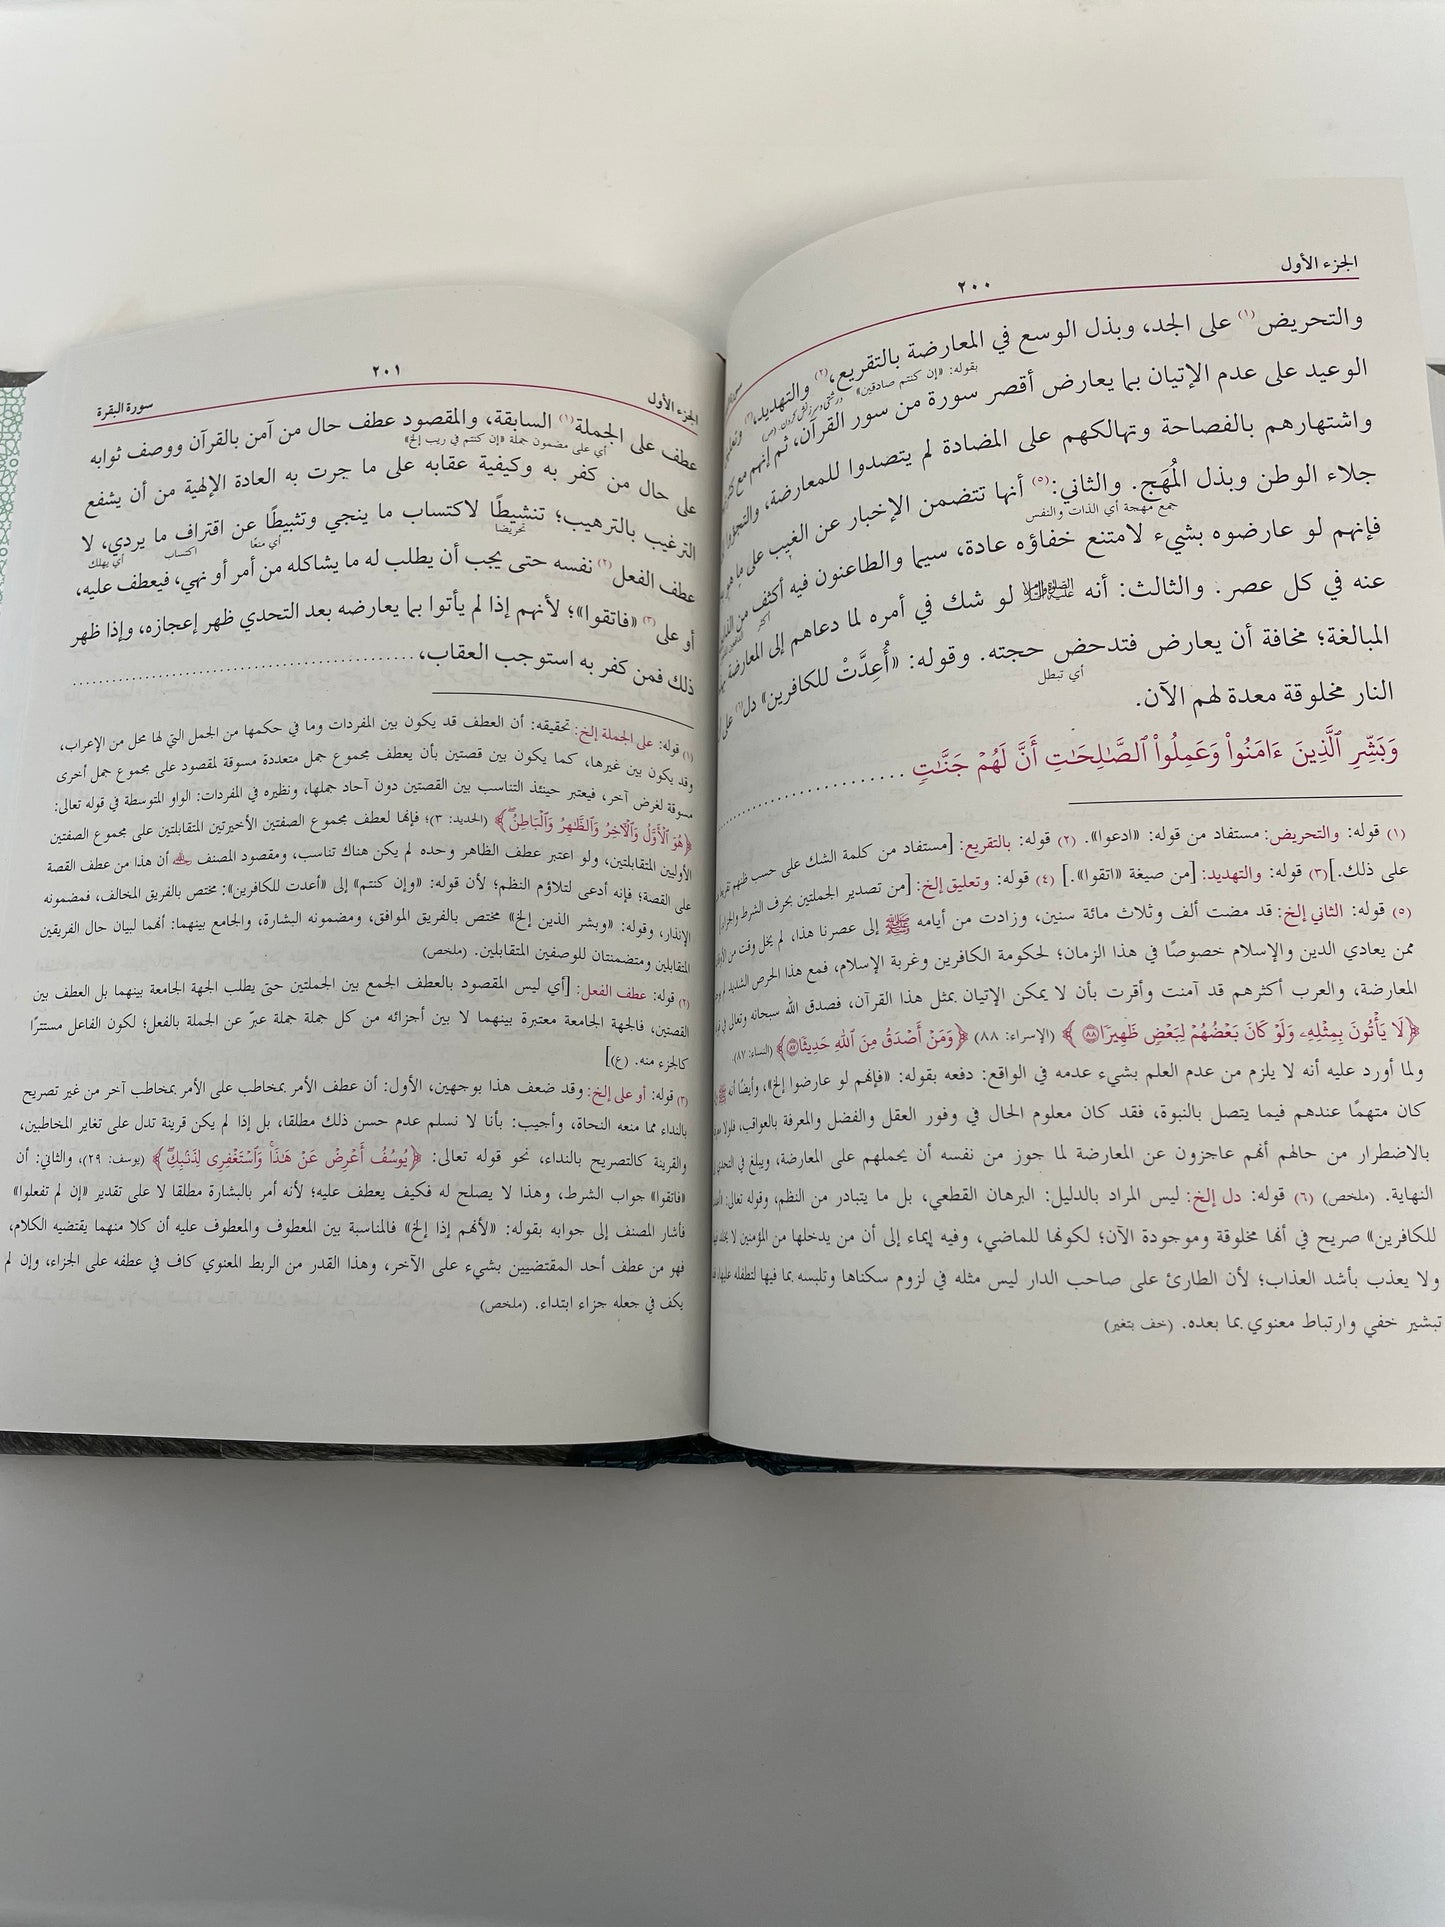 الجزء الأول
٢٠٠
والتحريض(١) على الجد، وبذل الوسع في المعارضة بالتقريع،(٢) والتهديد،(٣)
بقوله: «إن كنتم صادقين»
الوعيد على عدم الإتيان بما يعارض أقصر سورة من سور القرآن، ثم إنهم مع
واشتهارهم بالفصاحة وتهالكهم على المضادة لم يتصدوا للمعارضة،
جلاء الوطن وبذل المُهَج. والثاني:(٥) أنها تتضمن الإخبار عن الغيب على ما هو
جمع مهجة أي الذات والنفس
فإنهم لو عارضوه بشيء لامتنع خفاؤه عادة، سيما والطاعنون فيه أكثف من
أكثر
عنه في كل عصر. والثالث: أنه لو شك في أمره لما دعاهم إلى المعارضة
المبالغة؛ مخافة أن يعارض فتدحض حجته. وقوله: «أُعِدَّتْ للكافرين» دل(٦)
أي تبطل
النار مخلوقة معدة لهم الآن.
وَبَشِّرِ ٱلَّذِينَ ءَامَنُوا۟ وَعَمِلُوا۟ ٱلصَّٰلِحَٰتِ أَنَّ لَهُمْ جَنَّٰتٍ ............
(١) قوله: والتحريض: مستفاد من قوله: «ادعوا». (٢) قوله: بالتقريع: [مستفاد من كلمة الشك على حسب ظنهم
على ذلك.] (٣) قوله: والتهديد: [من صيغة «اتقوا».] (٤) قوله: وتعليق إلخ: [من تصدير الجملتين بحرف الشرط والجزاء.]
(٥) قوله: الثاني إلخ: قد مضت ألف وثلاث مائة سنين، وزادت من أيامه ﷺ إلى عصرنا هذا، لم يخل وقت من
ممن يعادي الدين والإسلام خصوصًا في هذا الزمان؛ لحكومة الكافرين وغربة الإسلام، فمع هذا الحرص الشديد لم
المعارضة، والعرب أكثرهم قد آمنت وأقرت بأن لا يمكن الإتيان بمثل هذا القرآن، فصدق الله سبحانه وتعالى في
﴿لَا يَأْتُونَ بِمِثْلِهِۦ وَلَوْ كَانَ بَعْضُهُمْ لِبَعْضٍ ظَهِيرًا ٨٨﴾ (الإسراء: ٨٨) ﴿وَمَنْ أَصْدَقُ مِنَ ٱللَّهِ حَدِيثًا ٨٧﴾ (النساء: ٨٧)
ولما أورد عليه أنه لا يلزم من عدم العلم بشيء عدمه في الواقع: دفعه بقوله: «فإنهم لو عارضوا إلخ»، وأيضًا أنه
كان متهمًا عندهم فيما يتصل بالنبوة، فقد كان معلوم الحال في وفور العقل والفضل والمعرفة بالعواقب، فلولا
بالاضطرار من حالهم أنهم عاجزون عن المعارضة لما جوز من نفسه أن يحملهم على المعارضة، ويبلغ في التحدي
النهاية. (ملخص) (٦) قوله: دل إلخ: ليس المراد بالدليل: البرهان القطعي، بل ما يتبادر من النظم، وقوله تعالى:
للكافرين» صريح في أنها مخلوقة وموجودة الآن؛ لكونها للماضي، وفيه إيماء إلى أن من يدخلها من المؤمنين لا
ولا يعذب بأشد العذاب؛ لأن الطارئ على صاحب الدار ليس مثله في لزوم سكناها وتلبسه بما فيها لتطفله عليها،
تبشير خفي وارتباط معنوي بما بعده. (خف بتغير)
الجزء الأول
٢٠١
سورة البقرة
عطف على الجملة(١) السابقة، والمقصود عطف حال من آمن بالقرآن ووصف ثوابه
أي على مضمون جملة «إن كنتم في ريب إلخ»
على حال من كفر به وكيفية عقابه على ما جرت به العادة الإلهية من أن يشفع
الترغيب بالترهيب؛ تنشيطًا لاكتساب ما ينجي وتثبيطًا عن اقتراف ما يردي، لا
تحريضا أي منعًا اكتساب أي يهلك
عطف الفعل(٢) نفسه حتى يجب أن يطلب له ما يشاكله من أمر أو نهي، فيعطف عليه،
أو على(٣) «فاتقوا»؛ لأنهم إذا لم يأتوا بما يعارضه بعد التحدي ظهر إعجازه، وإذا ظهر
ذلك فمن كفر به استوجب العقاب، ............
(١) قوله: على الجملة إلخ: تحقيقه: أن العطف قد يكون بين المفردات وما في حكمها من الجمل التي لها محل من الإعراب،
وقد يكون بين غيرها، كما يكون بين قصتين بأن يعطف مجموع جمل متعددة مسوقة لمقصود على مجموع جمل أخرى
مسوقة لغرض آخر، فيعتبر حينئذ التناسب بين القصتين دون آحاد جملها، ونظيره في المفردات: الواو المتوسطة في قوله تعالى:
﴿هُوَ ٱلْأَوَّلُ وَٱلْآخِرُ وَٱلظَّٰهِرُ وَٱلْبَاطِنُ﴾ (الحديد: ٣)؛ فإنها لعطف مجموع الصفتين الأخيرتين المتقابلتين على مجموع الصفتين
الأوليين المتقابلتين، ولو اعتبر عطف الظاهر وحده لم يكن هناك تناسب، ومقصود المصنف أن هذا من عطف القصة
على القصة؛ فإنه أدعى لتلاؤم النظم؛ لأن قوله: «وإن كنتم» إلى «أعدت للكافرين»: مختص بالفريق المخالف، فمضمونه
الإنذار، وقوله: «وبشر الذين إلخ» مختص بالفريق الموافق، ومضمونه البشارة، والجامع بينهما: أنهما لبيان حال الفريقين
المتقابلين ومتضمنتان للوصفين المتقابلين. (ملخص)
(٢) قوله: عطف الفعل: [أي ليس المقصود بالعطف الجمع بين الجملتين حتى يطلب الجهة الجامعة بينهما بل العطف بين
القصتين، فالجهة الجامعة معتبرة بينهما لا بين أجزائه من كل جملة جملة عبرّ عن الجملة بالفعل؛ لكون الفاعل مستترًا
كالجزء منه. (ع)]
(٣) قوله: أو على إلخ: وقد ضعف هذا بوجهين، الأول: أن عطف الأمر بمخاطب على الأمر بمخاطب آخر من غير تصريح
بالنداء مما منعه النحاة، وأجيب: بأنا لا نسلم عدم حسن ذلك مطلقا، بل إذا لم يكن قرينة تدل على تغاير المخاطبين،
والقرينة كالتصريح بالنداء، نحو قوله تعالى: ﴿يُوسُفُ أَعْرِضْ عَنْ هَٰذَا وَٱسْتَغْفِرِى لِذَنۢبِكِ﴾ (يوسف: ٢٩)، والثاني: أن
«فاتقوا» جواب الشرط، وهذا لا يصلح له فكيف يعطف عليه؛ لأنه أمر بالبشارة مطلقا لا على تقدير «إن لم تفعلوا»
فأشار المصنف إلى جوابه بقوله: «لأنهم إذا إلخ» فالمناسبة بين المعطوف والمعطوف عليه أن كلا منهما يقتضيه الكلام،
فهو من عطف أحد المقتضيين بشيء على الآخر، وهذا القدر من الربط المعنوي كاف في عطفه على الجزاء، وإن لم
يكف في جعله جزاء ابتداء. (ملخص)